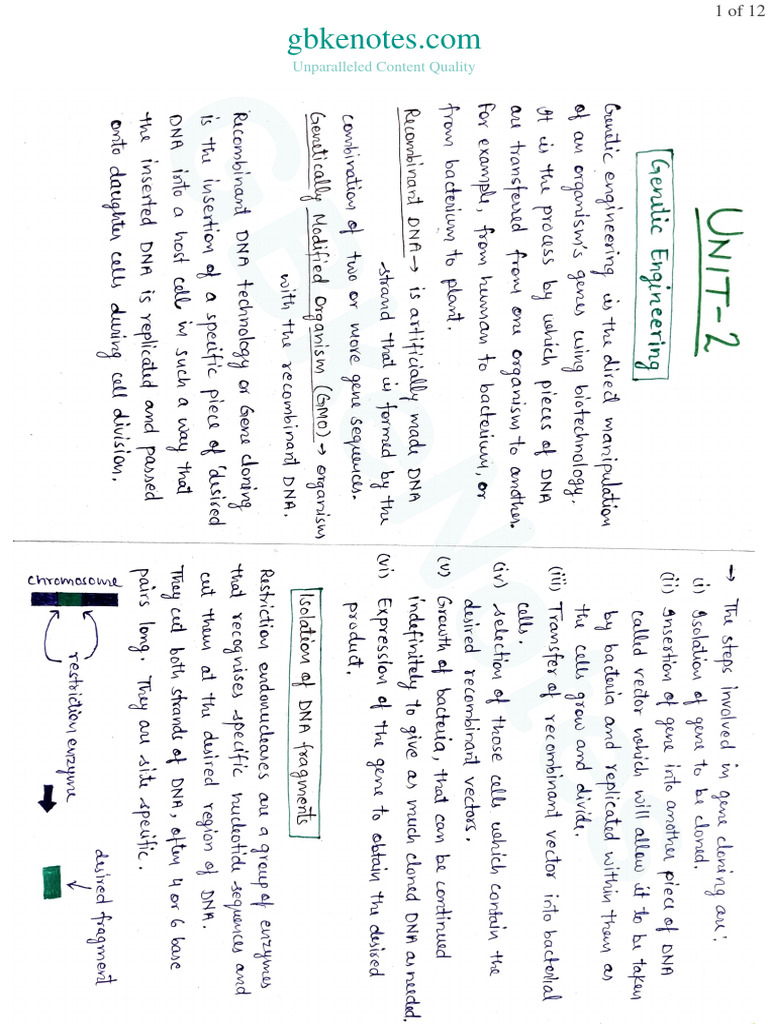 1 of 12
gbkenotes.com
Unparalleled Content Quality
UNIT-2
Genetic Engineering
Genetic engineering is the direct manipulation
of an organism's genes using biotechnology.
It is the process by which pieces of DNA
are transferred from one organism to another.
For example, from human to bacterium, or
from bacterium to plant.
Recombinant DNA → is artificially made DNA
strand that is formed by the
combination of two or more gene sequences.
Genetically Modified Organism (GMO) → organism
with the recombinant DNA.
Recombinant DNA technology or Gene cloning
is the insertion of a specific piece of 'desired
DNA into a host cell in such a way that
the inserted DNA is replicated and passed
onto daughter cells during cell division.
→ The steps involved in gene cloning are:
(i) Isolation of gene to be cloned.
(ii) Insertion of gene into another piece of DNA
called vector which will allow it to be taken
by bacteria and replicated within them as
the cells grow and divide.
(iii) Transfer of recombinant vector into bacterial
cells.
(iv) selection of those cells which contain the
desired recombinant vectors.
(v) Growth of bacteria, that can be continued
indefinitely to give as much cloned DNA as needed.
(vi) Expression of the gene to obtain the desired
product.
Isolation of DNA fragments
Restriction endonucleases are a group of enzymes
that recognises specific nucleotide sequences and
cut them at the desired region of DNA.
They cut both strands of DNA, often 4 or 6 base
pairs long. They are site specific.
chromosome
restriction enzyme
desired fragment
GBKeNotes